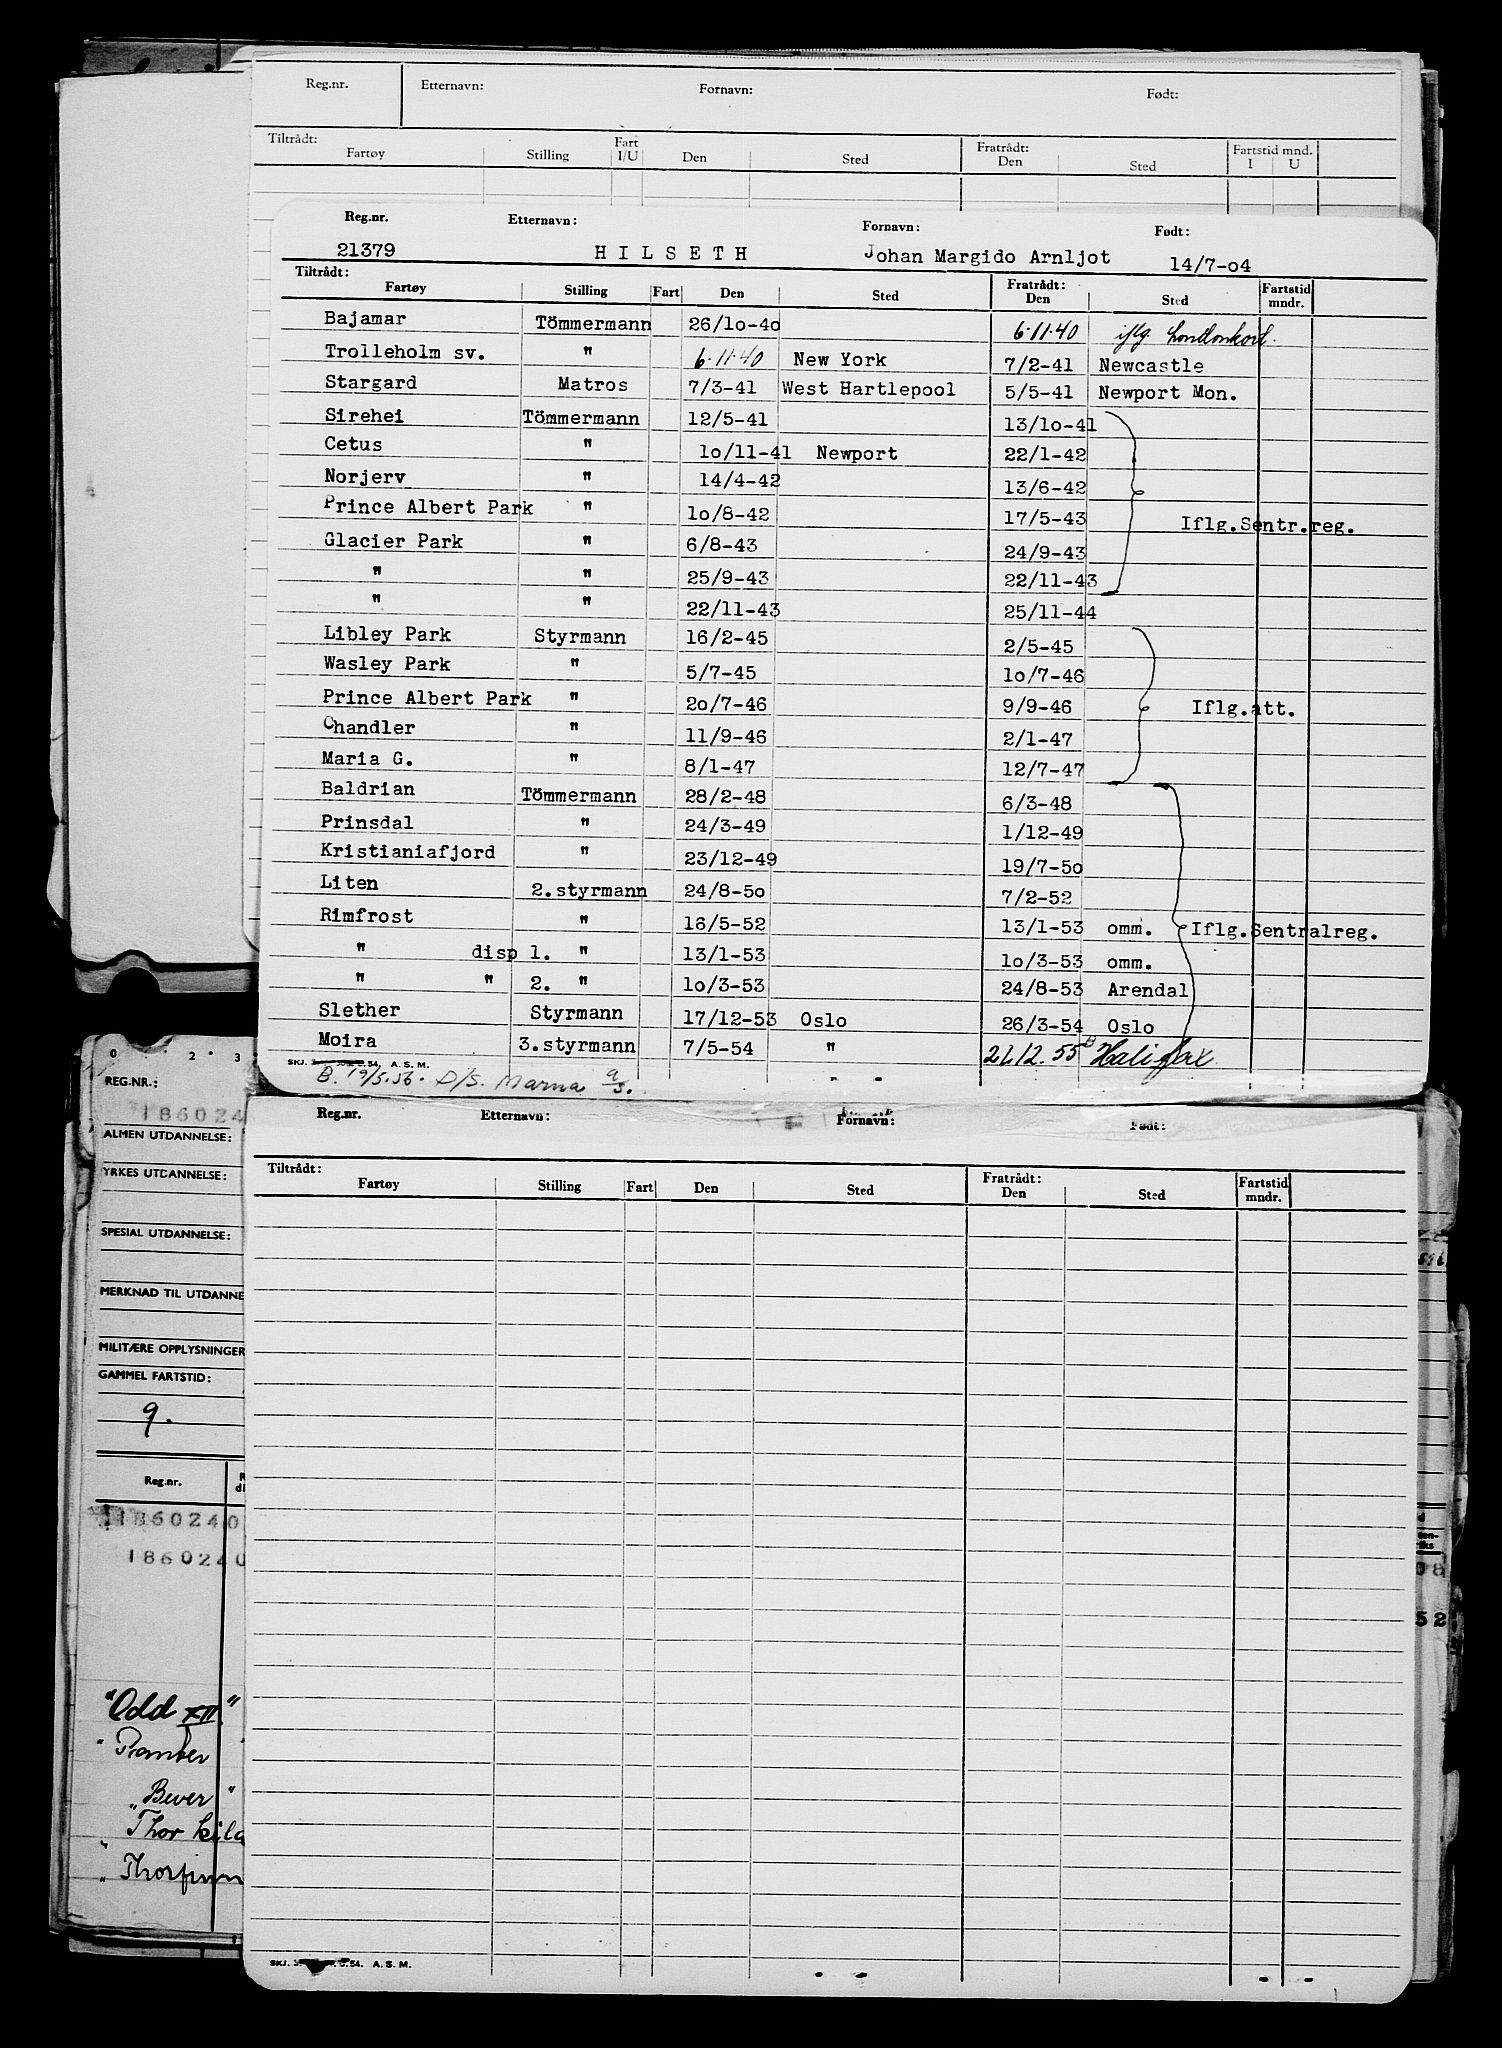 Reg.nr. Etternavn: Fornavn: Født:
Tiltrådt: Fratrådt: Fartstid mnd.
Fartøy Stilling Fart I/U Den Sted Den Sted I U
Reg.nr. Etternavn: Fornavn: Født:
21379 HILSETH Johan Margido Arnljot 14/7-04
Tiltrådt: Fratrådt: Fartstid mndr.
Fartøy Stilling Fart Den Sted Den Sted
Bajamar Tömmermann 26/10-40 6.11.40 iflg. Londonkort.
Trolleholm sv. " 6.11.40 New York 7/2-41 Newcastle
Stargard Matros 7/3-41 West Hartlepool 5/5-41 Newport Mon.
Sirehei Tömmermann 12/5-41 13/10-41
Cetus " 10/11-41 Newport 22/1-42
Norjerv " 14/4-42 13/6-42
Prince Albert Park " 10/8-42 17/5-43 Iflg.Sentr.reg.
Glacier Park " 6/8-43 24/9-43
" " 25/9-43 22/11-43
" " 22/11-43 25/11-44
Libley Park Styrmann 16/2-45 2/5-45
Wasley Park " 5/7-45 10/7-46
Prince Albert Park " 20/7-46 9/9-46 Iflg.att.
Chandler " 11/9-46 2/1-47
Maria G. " 8/1-47 12/7-47
Baldrian Tömmermann 28/2-48 6/3-48
Prinsdal " 24/3-49 1/12-49
Kristianiafjord " 23/12-49 19/7-50
Liten 2.styrmann 24/8-50 7/2-52
Rimfrost " 16/5-52 13/1-53 omm. Iflg.Sentralreg.
" disp 1. " 13/1-53 10/3-53 omm.
" " 2. " 10/3-53 24/8-53 Arendal
Slether Styrmann 17/12-53 Oslo 26/3-54 Oslo
Moira 3.styrmann 7/5-54 " 21.12.55 Halifax
A. S. M.
B. 19/5.56. D/S. Marna 9/3.
Reg.nr. Etternavn: Fornavn: Født:
Tiltrådt: Fratrådt: Fartstid mndr.
Fartøy Stilling Fart Den Sted Den Sted
.54. A. S. M.
0 2 3
REG.NR.:
186024
ALMEN UTDANNELSE:
YRKES UTDANNELSE:
SPESIAL UTDANNELSE:
MERKNAD TIL UTDANNE
MILITÆRE OPPLYSNINGER
GAMMEL FARTSTID:
9.
Reg.nr.
1860240
1860240
08
52
"Odd XII"
"Ramber
"Bever"
"Thor
"Thorfinn